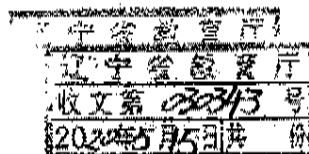 辽宁省教育厅
辽宁省教育厅
收文第 030343 号
2020年5月15日共 份